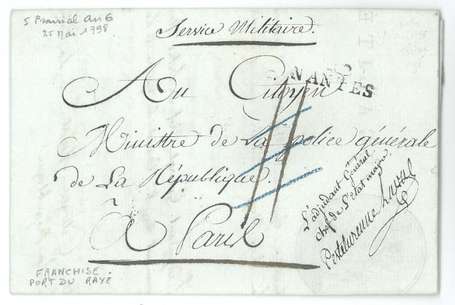 5 Prairial An 6
25 Mai 1798
Service Militaire.
Au Citoyen
NANTES
Ministre de la police générale
de La République
à Paris
L'adjudant Général
chef de l'état major
FRANCHISE
PORT DU RAYÉ